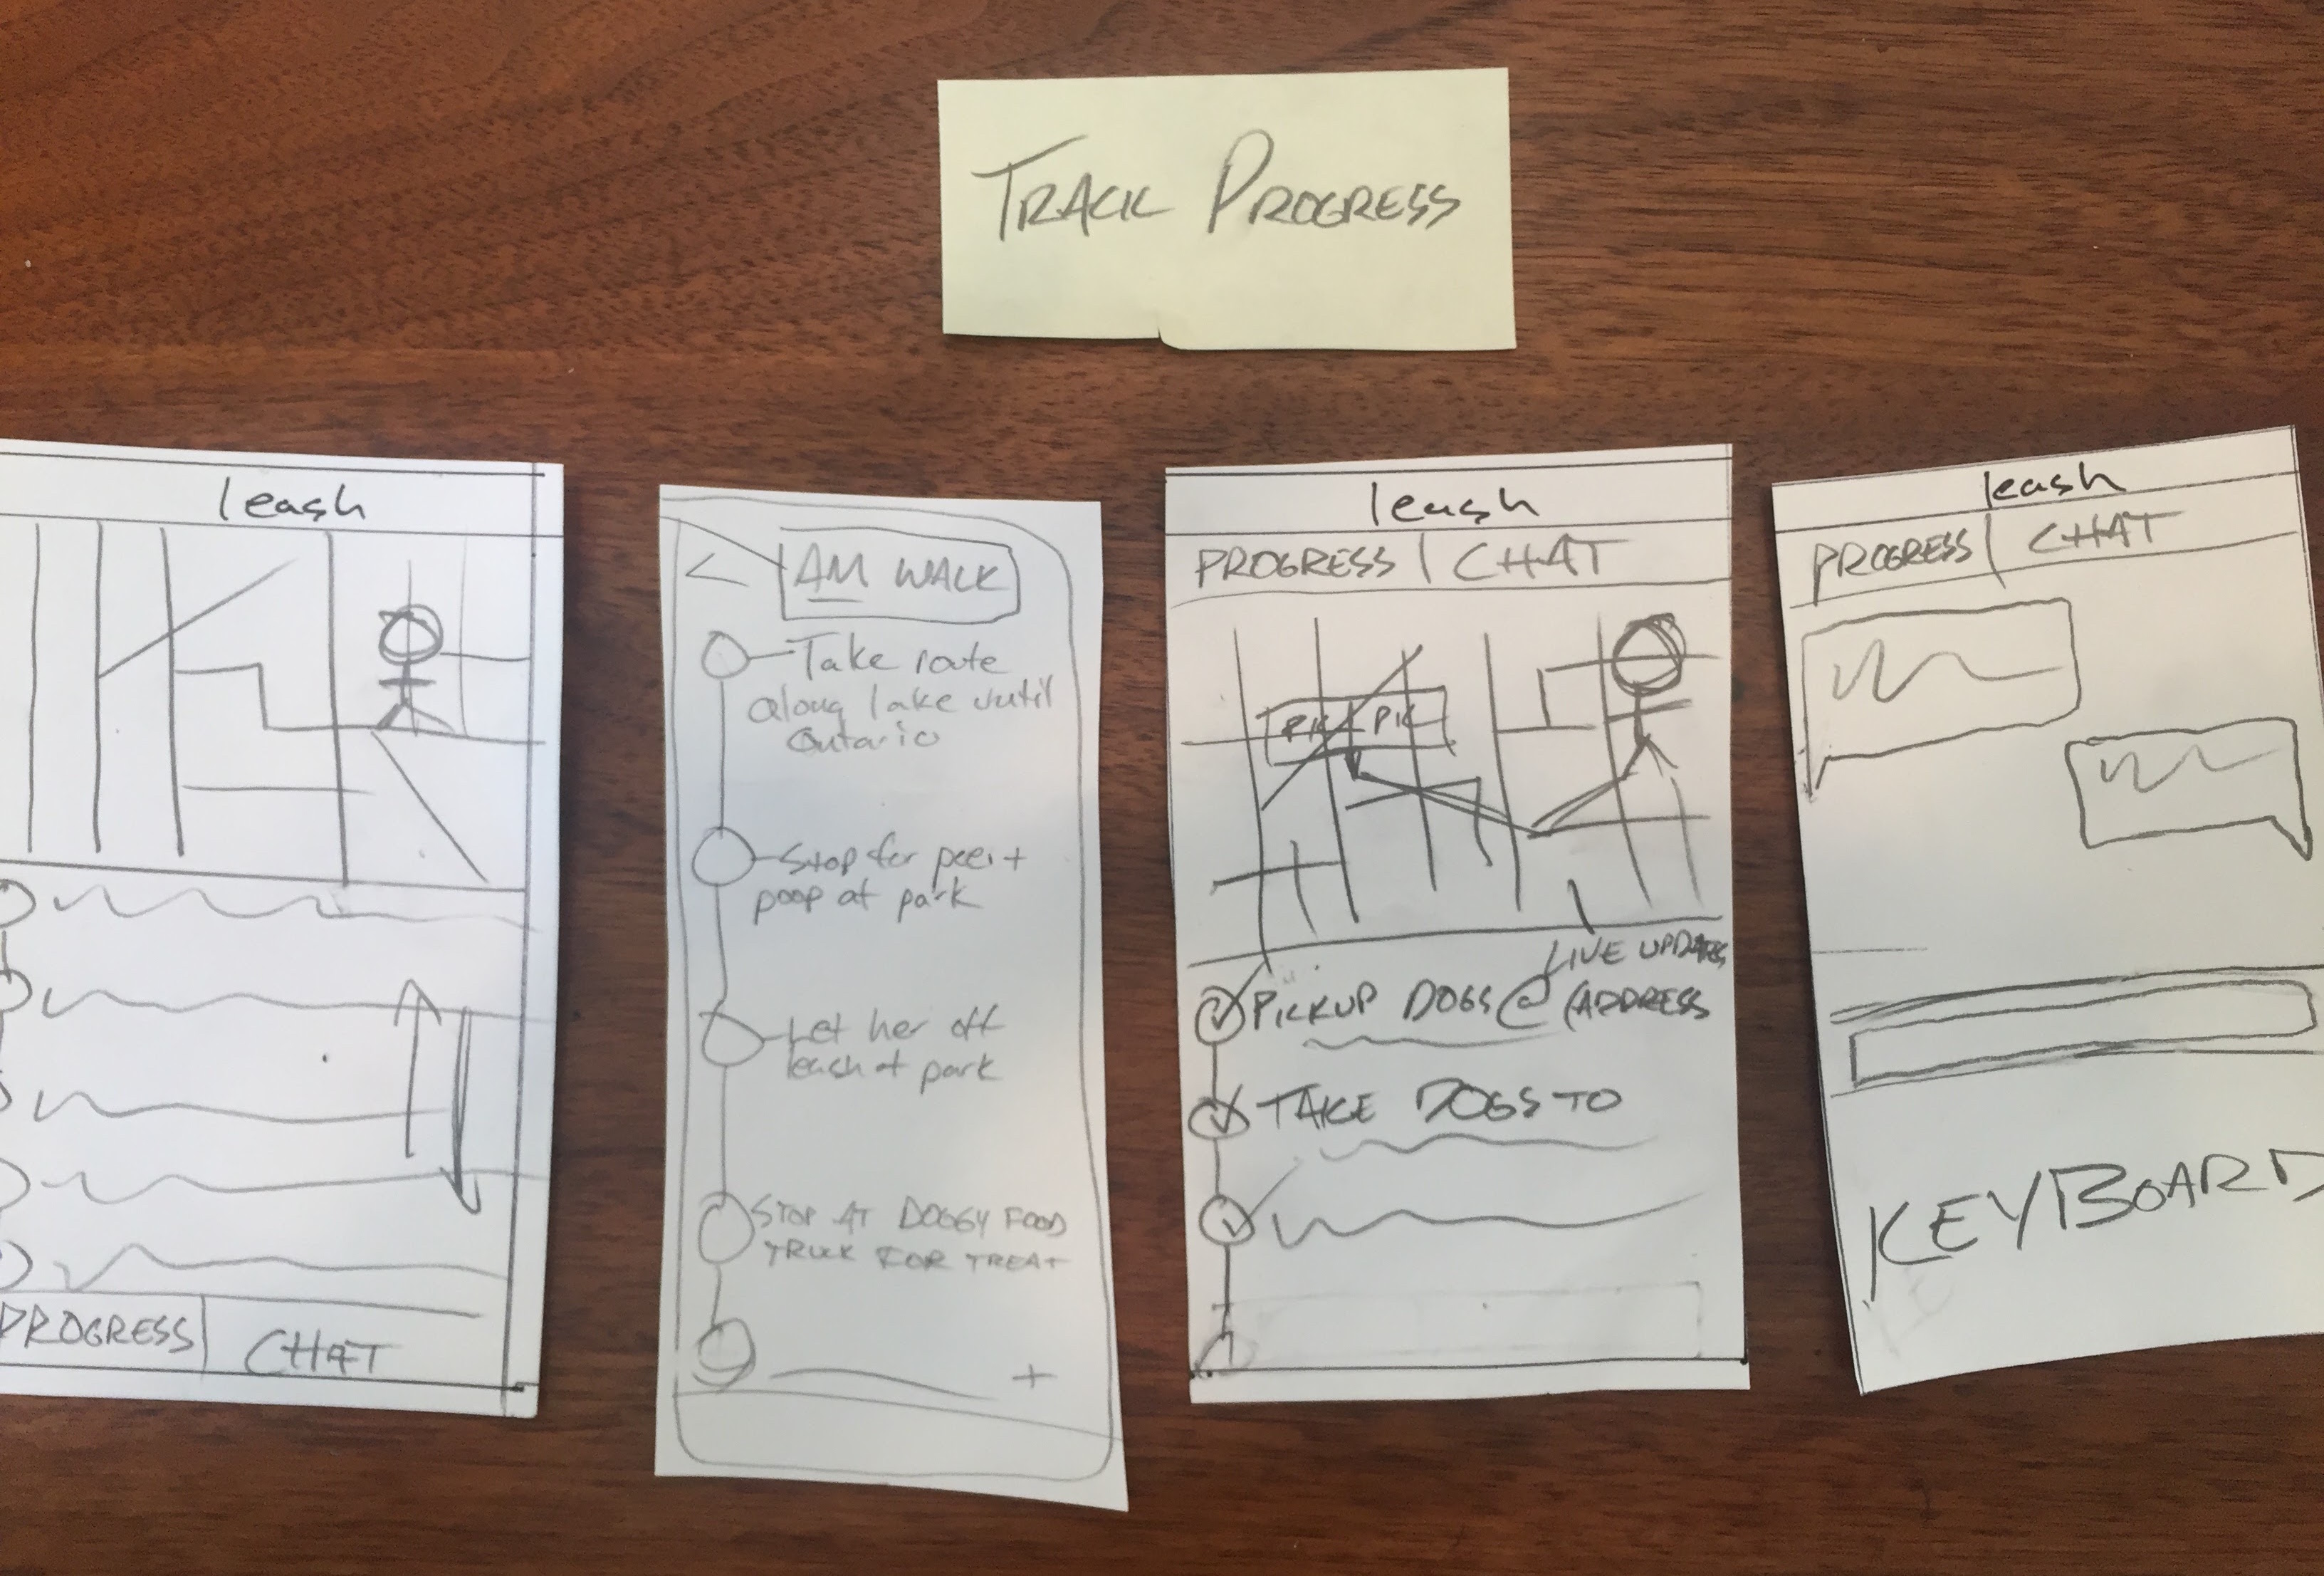 TRACK PROGRESS
leash
PROGRESS | CHAT
< AM WALK
Take route
along lake until
Ontario
Stop for pee +
poop at park
Let her off
leash at park
STOP AT DOGGY FOOD
TRUCK FOR TREAT
+
leash
PROGRESS | CHAT
PIC PIC
LIVE UPDATES
PICKUP DOGS @ (ADDRESS
TAKE DOGS TO
leash
PROGRESS | CHAT
KEYBOARD